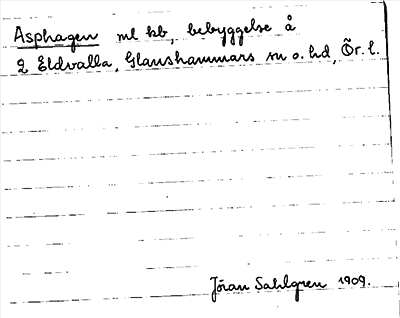 Asphagen ml kb, bebyggelse å
2 Eldvalla, Glanshammars sn o. hd, Ör. l.
Jöran Sahlgren 1909.